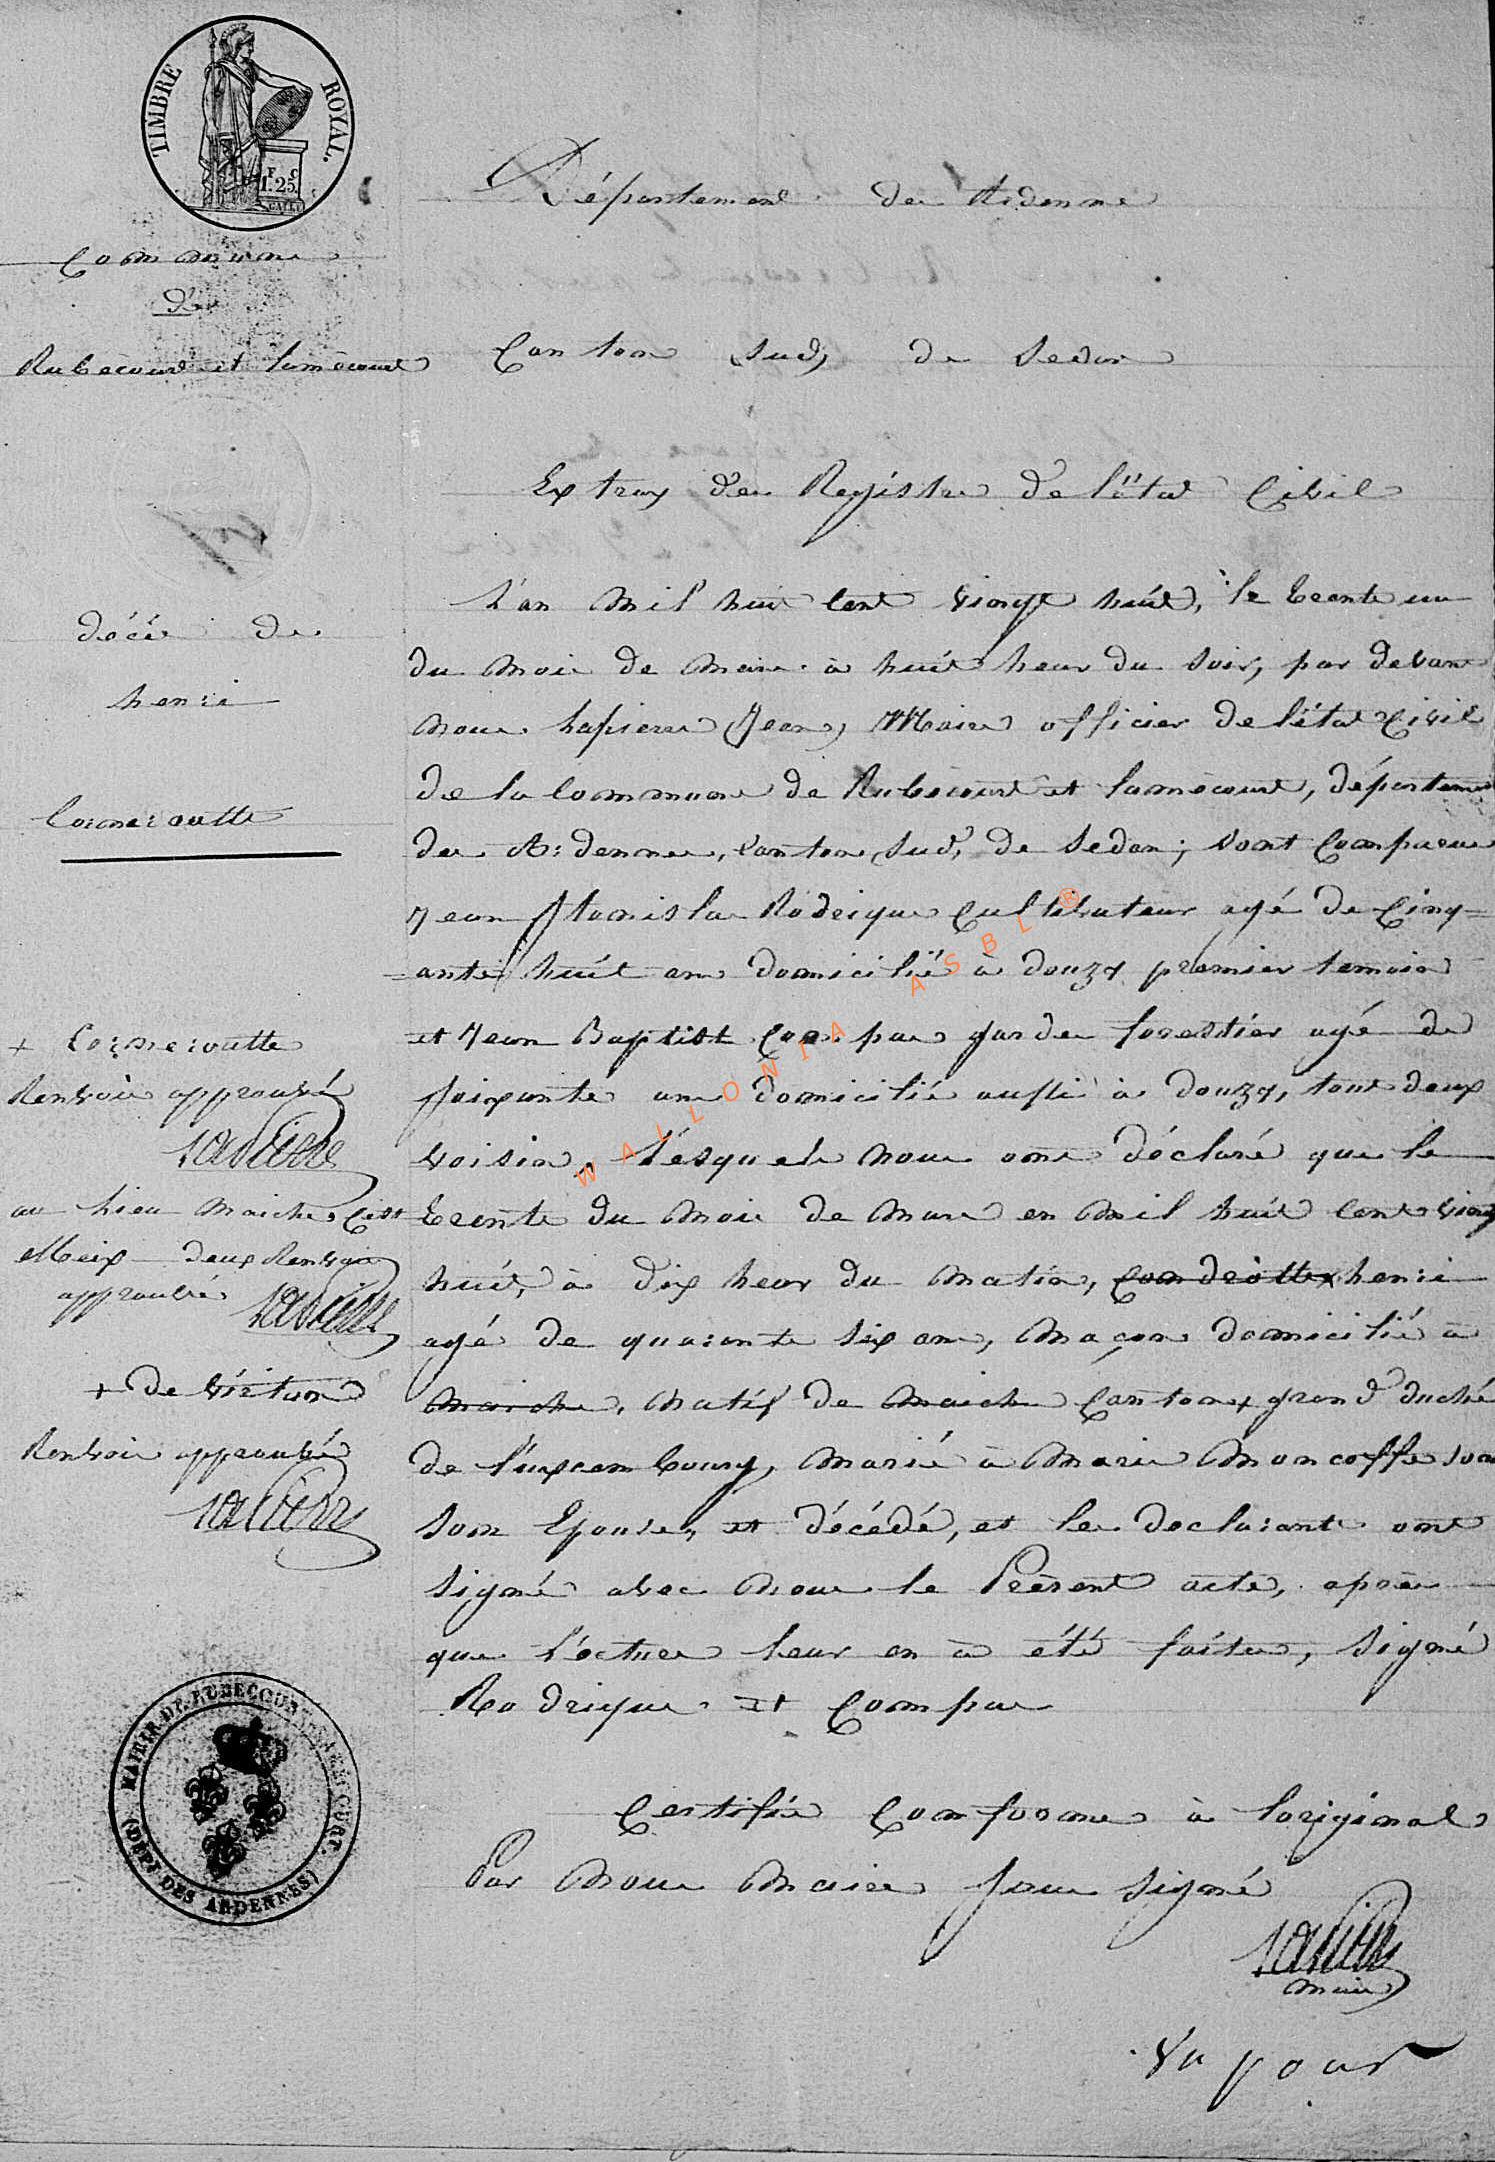 TIMBRE ROYAL.
F C
1.25.
Commune
de
Rubécourt et lamécourt
Département des Ardenne
Canton Sud, de Sedan
Extrax des Registre de l'état Civil
décés de
henri
Corneroutte
L'an mil huit cent vingt huit, le trente un
du mois de mars à huit heur du soir, par devant
nous lapierre Jean, Maire officier de l'état Civil
de la commune de Rubécourt et lamécourt, département
des Ardennes, canton Sud, de Sedan; sont comparus
Jean Stanislas Rodrique Cultivateur agé de Cinq=
=ante huit ans domicilié à douzy premier temoin
et Jean Baptist Compas garde forestier agé de
soixante ans domicilié aussi à douzy, tout deux
voisin, lésquels nous ont déclaré que le
trente du mois de mars en mil huit cent vingt
huit, à dix heur du matin, henri
agé de quarante six ans, maçon domicilié à
marche, natif de marche Canton + grand duché
de luxembourg, marié à Marie Moncoffe
son Epouse, et décédé, et les declarant ont
signé avec nous le Présent acte, après
que lécture leur en a été faite, signé
Rodrique et Compas
+ Corneroutte
Renvoie approuvé
lapierre
au lieu marche,
Meix deux Renvoie
approuvés lapierre
+ de Virton
Renvoie approuvé
lapierre
MAIRIE DE RUBECOURT ET LAMECOURT.
(DÉPT DES ARDENNES)
Certifié Conforme à loriginal
Par nous Maire sous signé
lapierre
maire
Vu pour
WALLONIA ASBL ®